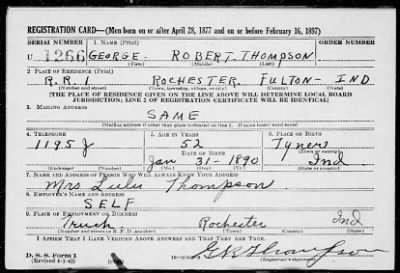 REGISTRATION CARD—(Men born on or after April 28, 1877 and on or before February 16, 1897)
SERIAL NUMBER 1. NAME (Print) ORDER NUMBER
U 1266 GEORGE ROBERT THOMPSON
(First) (Middle) (Last)
2. PLACE OF RESIDENCE (Print)
R.R. 1 ROCHESTER FULTON- IND
(Number and street) (Town, township, village, or city) (County) (State)
[THE PLACE OF RESIDENCE GIVEN ON THE LINE ABOVE WILL DETERMINE LOCAL BOARD
JURISDICTION; LINE 2 OF REGISTRATION CERTIFICATE WILL BE IDENTICAL]
3. MAILING ADDRESS
SAME
[Mailing address if other than place indicated on line 2. If same insert word same]
4. TELEPHONE 5. AGE IN YEARS 6. PLACE OF BIRTH
1195 J 52 Tyner
DATE OF BIRTH (Town or county)
Jan 31-1890 Ind
(Exchange) (Number) (Mo.) (Day) (Yr.) (State or country)
7. NAME AND ADDRESS OF PERSON WHO WILL ALWAYS KNOW YOUR ADDRESS
Mrs Lulu Thompson
8. EMPLOYER'S NAME AND ADDRESS
SELF
9. PLACE OF EMPLOYMENT OR BUSINESS
Truck Rochester Ind
(Number and street or R. F. D. number) (Town) (County) (State)
I AFFIRM THAT I HAVE VERIFIED ABOVE ANSWERS AND THAT THEY ARE TRUE.
D. S. S. Form 1
(Revised 4-1-42) G R Thompson
(Registrant's signature)